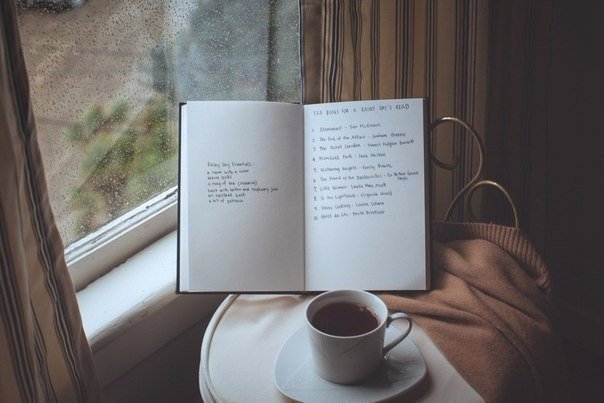 Rainy Day Essentials:
a room with a view
warm socks
a mug of tea (steaming)
toast with butter and raspberry jam
an excellent book
a bit of patience
TEN BOOKS FOR A RAINY DAY'S READ
1 Atonement - Ian McEwan
2 The End of the Affair - Graham Greene
3 The Secret Garden - Frances Hodgson Burnett
4 Mansfield Park - Jane Austen
5 Wuthering Heights - Emily Bronte
6 The Hound of the Baskervilles - Sir Arthur Conan Doyle
7 Little Women - Louisa May Alcott
8 To the Lighthouse - Virginia Woolf
9 Home Cooking - Laurie Colwin
10 Hotel du Lac - Anita Brookner